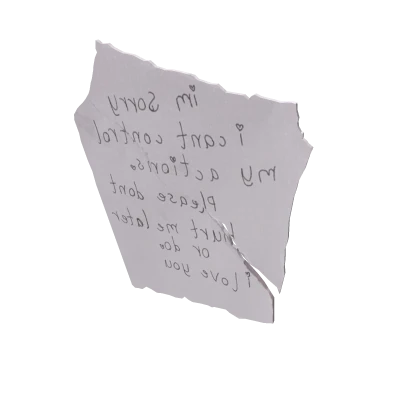 im sorry
i cant control
my actions.
Please dont
hurt me later
or do.
i love you